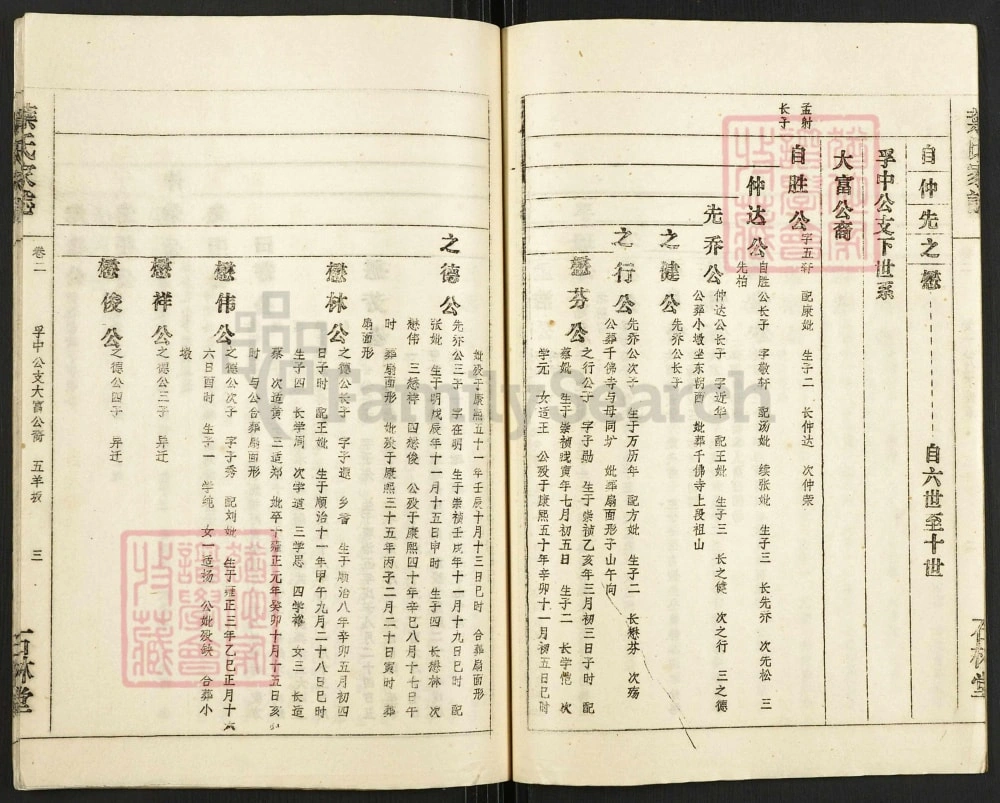 自仲先之懋————自六世至十世
孚中公支下世系
大富公裔
孟射
长子
自胜公 字五轩 配康妣 生子二 长仲达 次仲荣
仲达公 自胜公长子 字敬轩 配汤妣 续张妣 生子三 长先乔 次先松 三
先柏
先乔公 仲达公长子 字近华 配王妣 生子三 长之健 次之行 三之德
公葬小墩坐东朝西 妣葬千佛寺上段祖山
之健公 先乔公长子
之行公 先乔公次子 生于万历年 配方妣 生子二 长懋芬 次殇
公葬千佛寺与母同圹 妣葬扇面形子山午向
懋芬公 之行公子 字子勋 生于崇祯乙亥年三月初三日子时 配
蔡妣 生于崇祯戊寅年七月初五日 生子二 长学恺 次
学元 女适王 公殁于康熙五十年辛卯十一月初五日巳时
妣殁于康熙五十一年壬辰十月十三日巳时 合葬扇面形
之德公 先乔公三子 字在明 生于崇祯壬戌年十一月十九日巳时 配
张妣 生于明戊辰年十一月十五日申时 生子四 长懋林 次
懋伟 三懋祥 四懋俊 公殁于康熙四十年辛巳八月十七日午
时 葬扇面形 妣殁于康熙三十五年丙子二月二十日寅时 葬
扇面形
懋林公 之德公长子 字子遐 乡耆 生于顺治八年辛卯五月初四
日子时 配王妣 生于顺治十一年甲午九月二十八日巳时
生子四 长学周 次学道 三学思 四学裕 女三 长适
蔡 次适黄 三适郑 妣卒于雍正元年癸卯十月十五日亥
时 与公合葬扇面形
懋伟公 之德公次子 字子秀 配刘妣 生于雍正三年乙巳正月十
六日酉时 生子一 学纯 女一适杨 公妣殁缺 合葬小
墩
懋祥公 之德公三子 异迁
懋俊公 之德公四子 异迁
叶氏家志
卷二 孚中公支大富公裔 五羊坂 三
石林堂